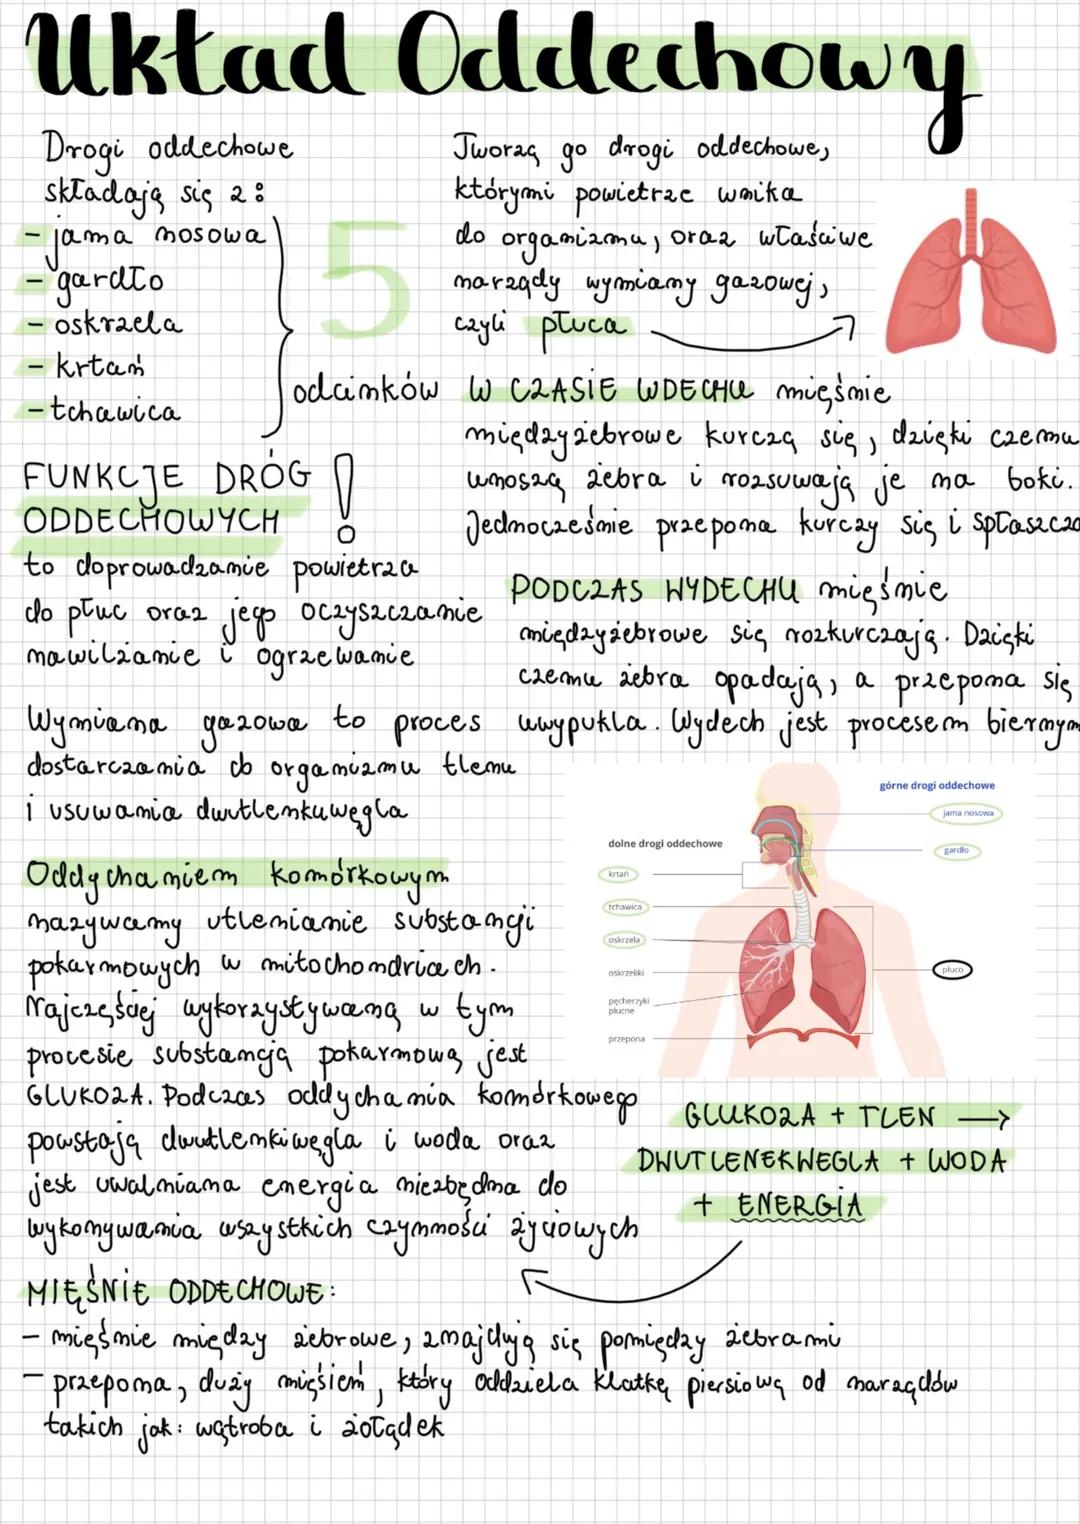 Układ Oddechowy
Drogi oddechowe
składają się z:
- jama nosowa
- gardło
- oskrzela
- krtań
- tchawica
5
odcinków
Tworzą go drogi oddechowe,
którymi powietrze wnika
do organizmu, oraz właściwe
narządy wymiany gazowej,
czyli płuca
W CZASIE WDECHU mięśnie
międzyżebrowe kurczą się, dzięki czemu
unoszą żebra i rozsuwają je na boki.
Jednocześnie przepona kurczy się i spłaszcza
FUNKCJE DRÓG
ODDECHOWYCH !
to doprowadzanie powietrza
do płuc oraz jego oczyszczanie
nawilżanie i ogrzewanie
PODCZAS WYDECHU mięśnie
międzyżebrowe się rozkurczają. Dzięki
czemu żebra opadają, a przepona się
uwypukla. Wydech jest procesem biernym
Wymiana gazowa to proces
dostarczania do organizmu tlenu
i usuwania dwutlenku węgla
górne drogi oddechowe
jama nosowa
gardło
dolne drogi oddechowe
krtań
tchawica
oskrzela
oskrzeliki
pęcherzyki
płucne
przepona
płuco
Oddychaniem komórkowym
nazywamy utlenianie substancji
pokarmowych w mitochondriach.
Najczęściej wykorzystywaną w tym
procesie substancją pokarmową jest
GLUKOZA. Podczas oddychania komórkowego
powstają dwutlenki węgla i woda oraz
jest uwalniana energia niezbędna do
wykonywania wszystkich czynności życiowych
GLUKOZA + TLEN →
DWUTLENEK WEGLA + WODA
+ ENERGIA
MIĘŚNIE ODDECHOWE:
- mięśnie między żebrowe, znajdują się pomiędzy żebrami
- przepona, duży mięsień, który oddziela klatkę piersiową od narządów
takich jak: wątroba i żołądek